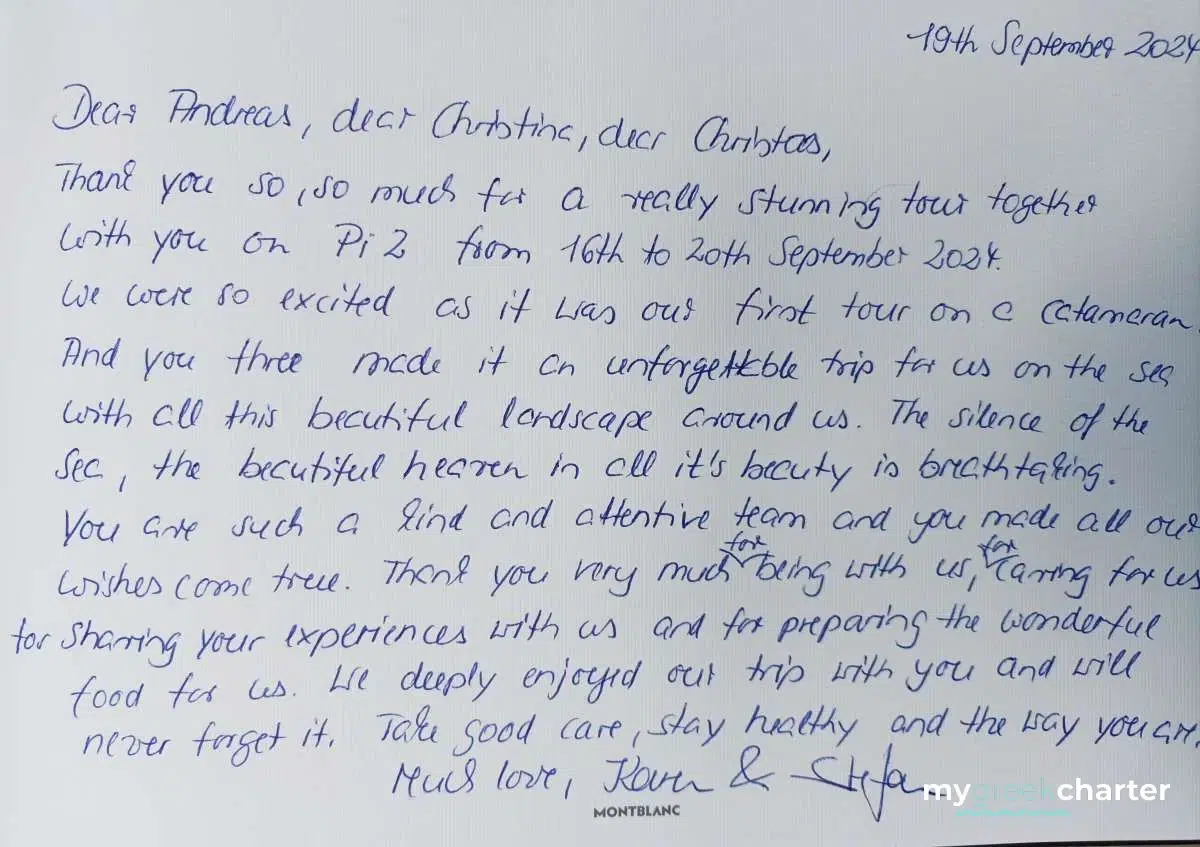 19th September 2024
Dear Andreas, dear Christina, dear Christos,
Thank you so, so much for a really stunning tour together
with you on Pi 2 from 16th to 20th September 2024.
We were so excited as it was our first tour on a catamaran.
And you three made it an unforgettable trip for us on the sea
with all this beautiful landscape around us. The silence of the
sea, the beautiful heaven in all it's beauty is breathtaking.
You are such a kind and attentive team and you made all our
wishes come true. Thank you very much for being with us, for carring for us
for sharring your experiences with us and for preparing the wonderful
food for us. We deeply enjoyed our trip with you and will
never forget it. Take good care, stay healthy and the way you are.
Much love, Karen & Stefan
MONTBLANC
mygreekcharter